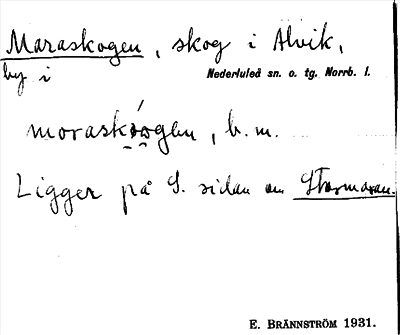 Maraskogen, skog i Alvik,
by i Nederluleå sn. o. tg. Norrb. l.
moraskó̯o̯gen, b.m.
Ligger på S. sidan om Stormaran.
E. BRÄNNSTRÖM 1931.